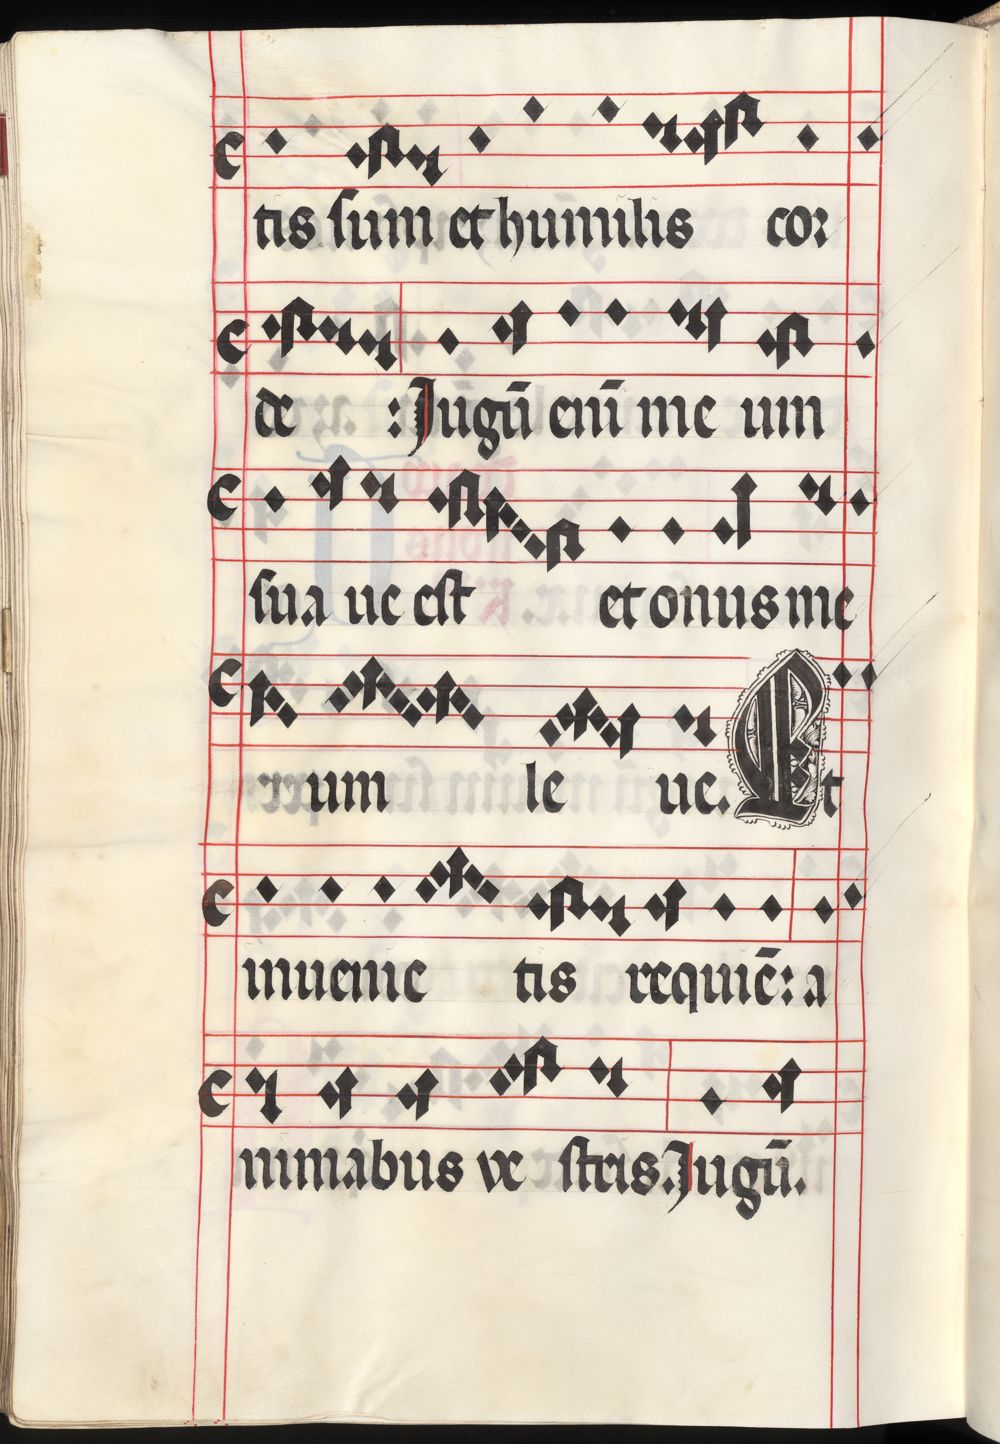 tis sum et humilis cor
de : Iugū enī me um
sua ue est et onus me
um le ue. Et
inuenie tis requiē: a
nimabus ve stris. Iugū.